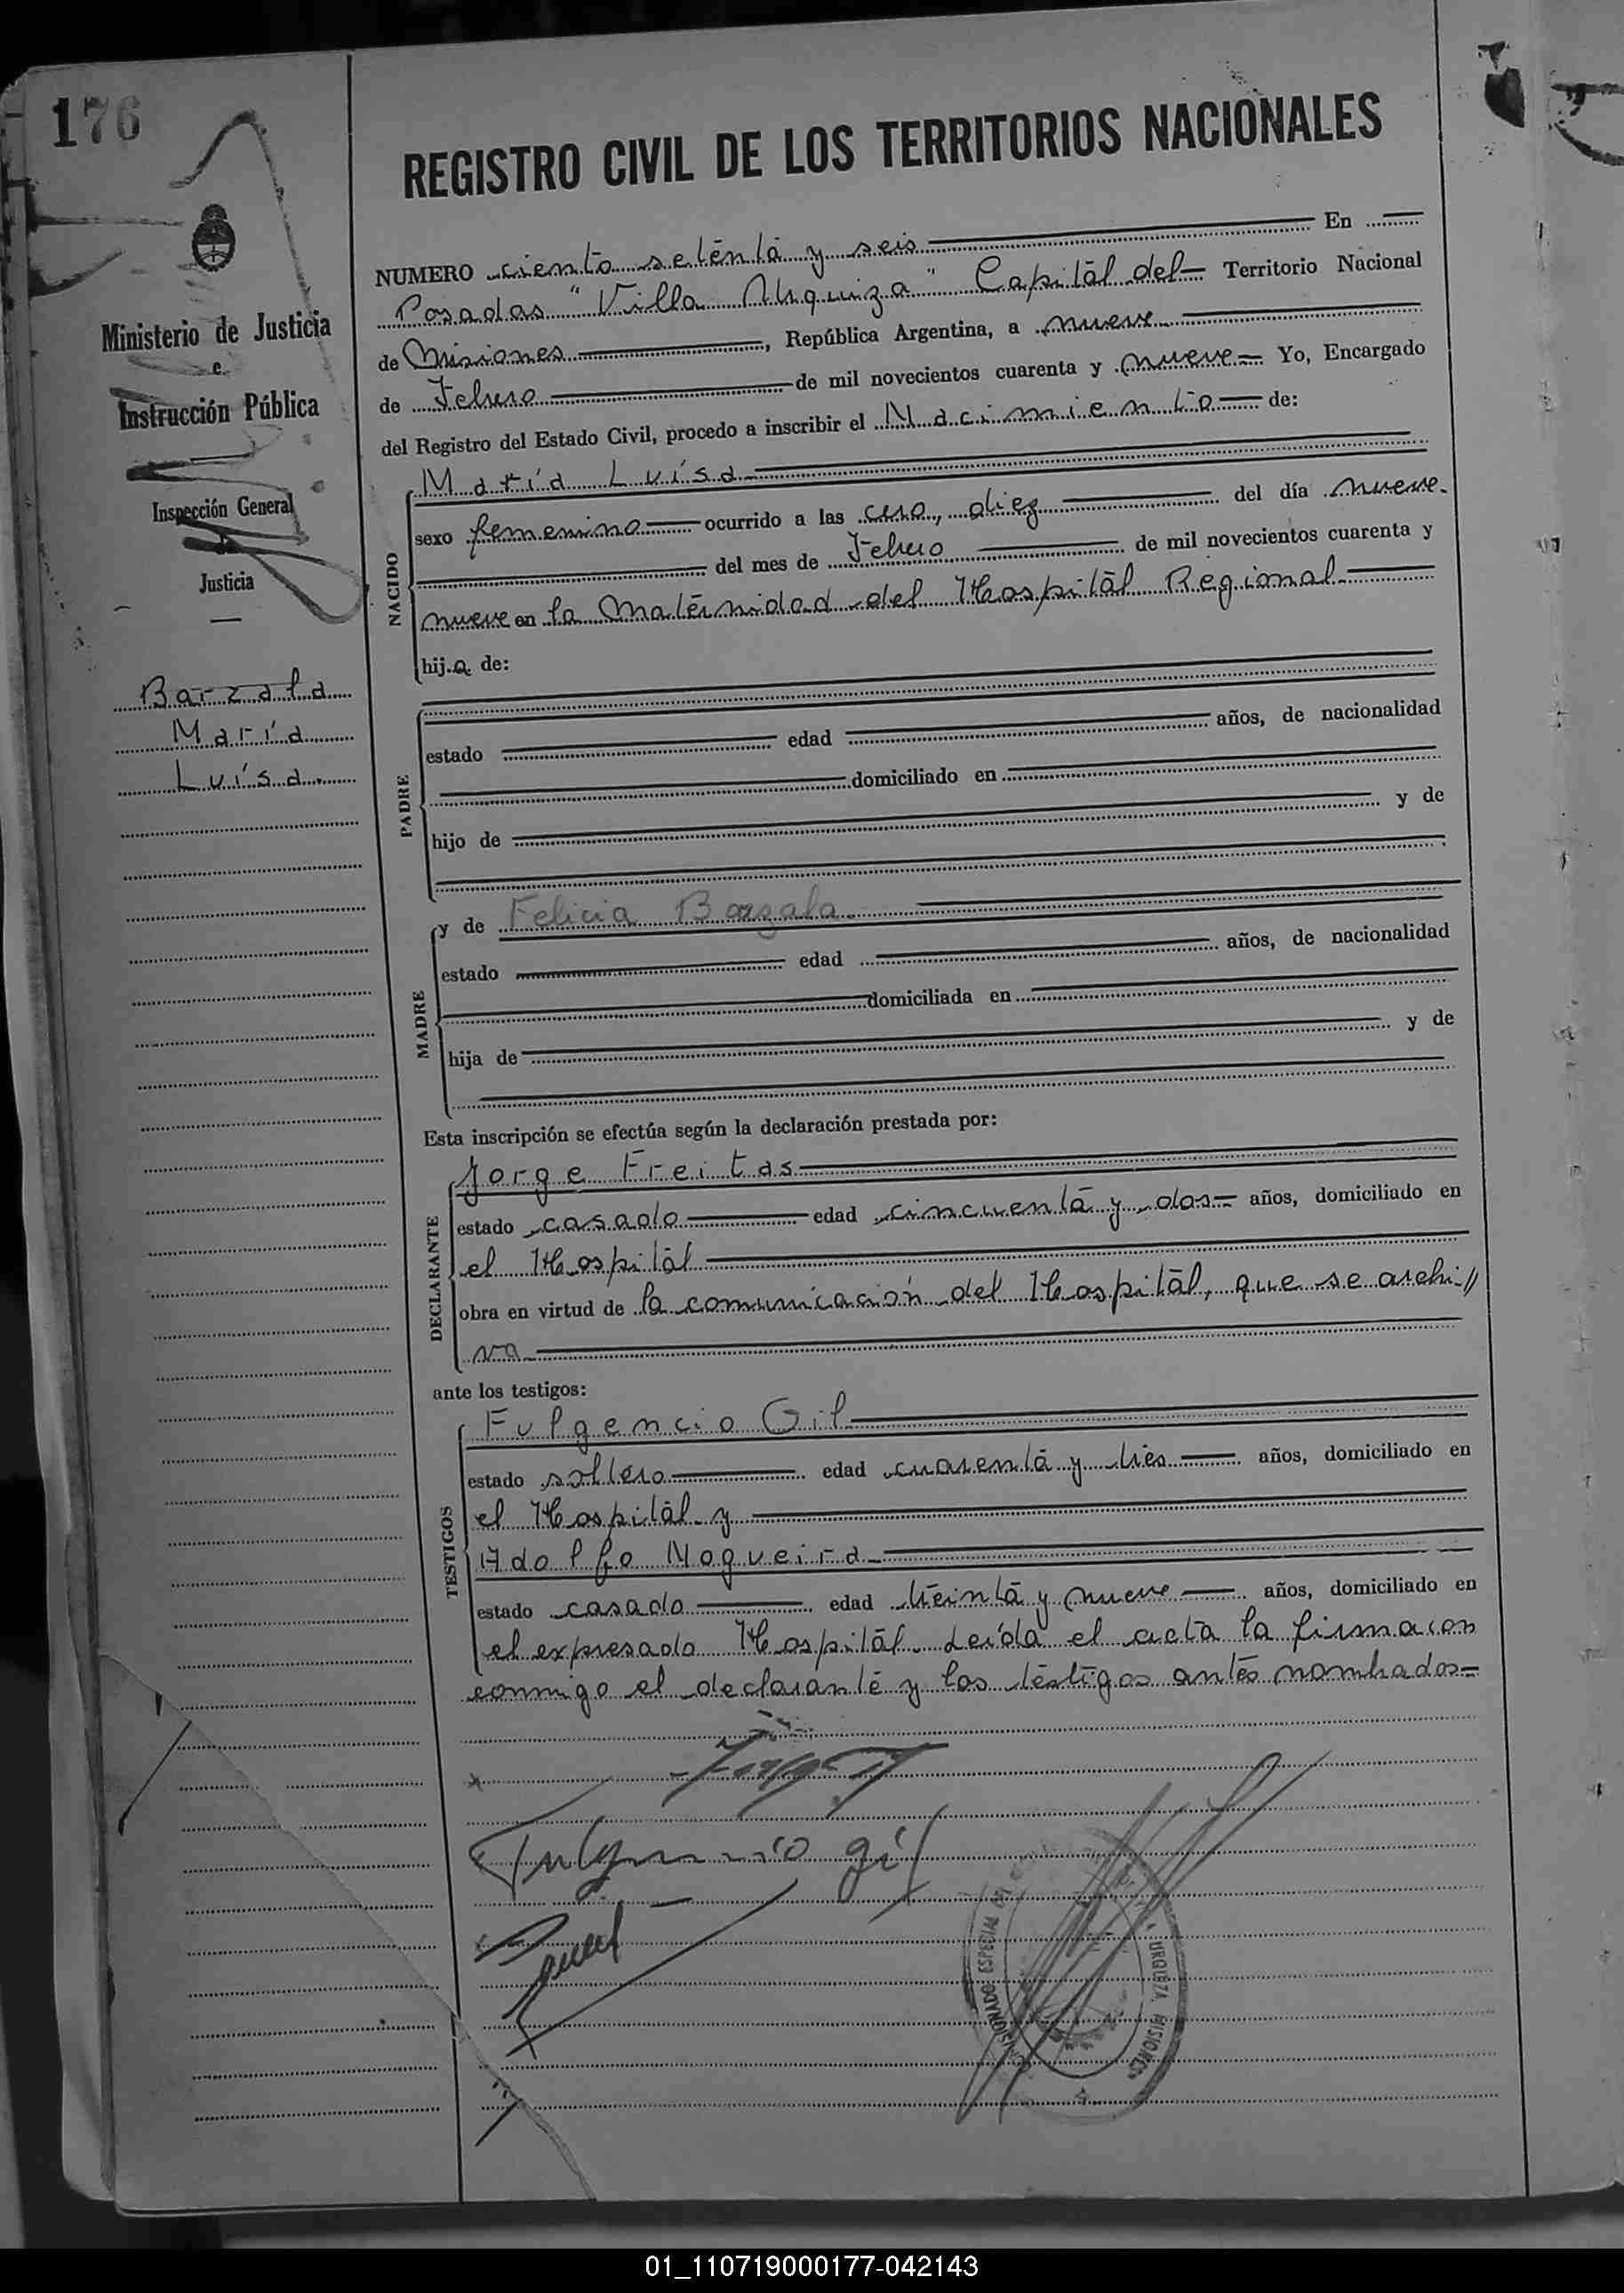 176
Ministerio de Justicia
e
Instrucción Pública
Inspección General
de
Justicia
Barzala
María
Luísa
REGISTRO CIVIL DE LOS TERRITORIOS NACIONALES
NUMERO ciento setenta y seis En
Posadas "Villa Urquiza" Capital del Territorio Nacional
de Misiones, República Argentina, a nueve
de Febrero de mil novecientos cuarenta y nueve Yo, Encargado
del Registro del Estado Civil, procedo a inscribir el Nacimiento de:
NACIDO
María Luísa
sexo femenino ocurrido a las cero, diez del día nueve
del mes de Febrero de mil novecientos cuarenta y
nueve en la Maternidad del Hospital Regional
hija de:
PADRE
estado edad años, de nacionalidad
domiciliado en
hijo de y de
MADRE
y de Felicia Barzala
estado edad años, de nacionalidad
domiciliada en
hija de y de
Esta inscripción se efectúa según la declaración prestada por:
DECLARANTE
Jorge Freitas
estado casado edad cincuenta y dos años, domiciliado en
el Hospital
obra en virtud de la comunicación del Hospital, que se archi//
va
ante los testigos:
TESTIGOS
Fulgencio Gil
estado soltero edad cuarenta y tres años, domiciliado en
el Hospital y
Adolfo Nogueira
estado casado edad treinta y nueve años, domiciliado en
el expresado Hospital. Leída el acta la firmaron
conmigo el declarante y los testigos antes nombrados=
Fulgencio gil
ESPECIAL
URQUIZA MISIONES
01_110719000177-042143